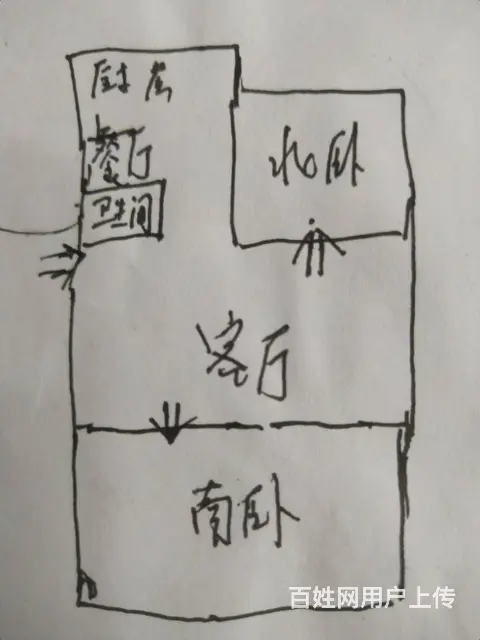 厨房
北卧
餐厅
卫生间
客厅
南卧
百姓网用户上传